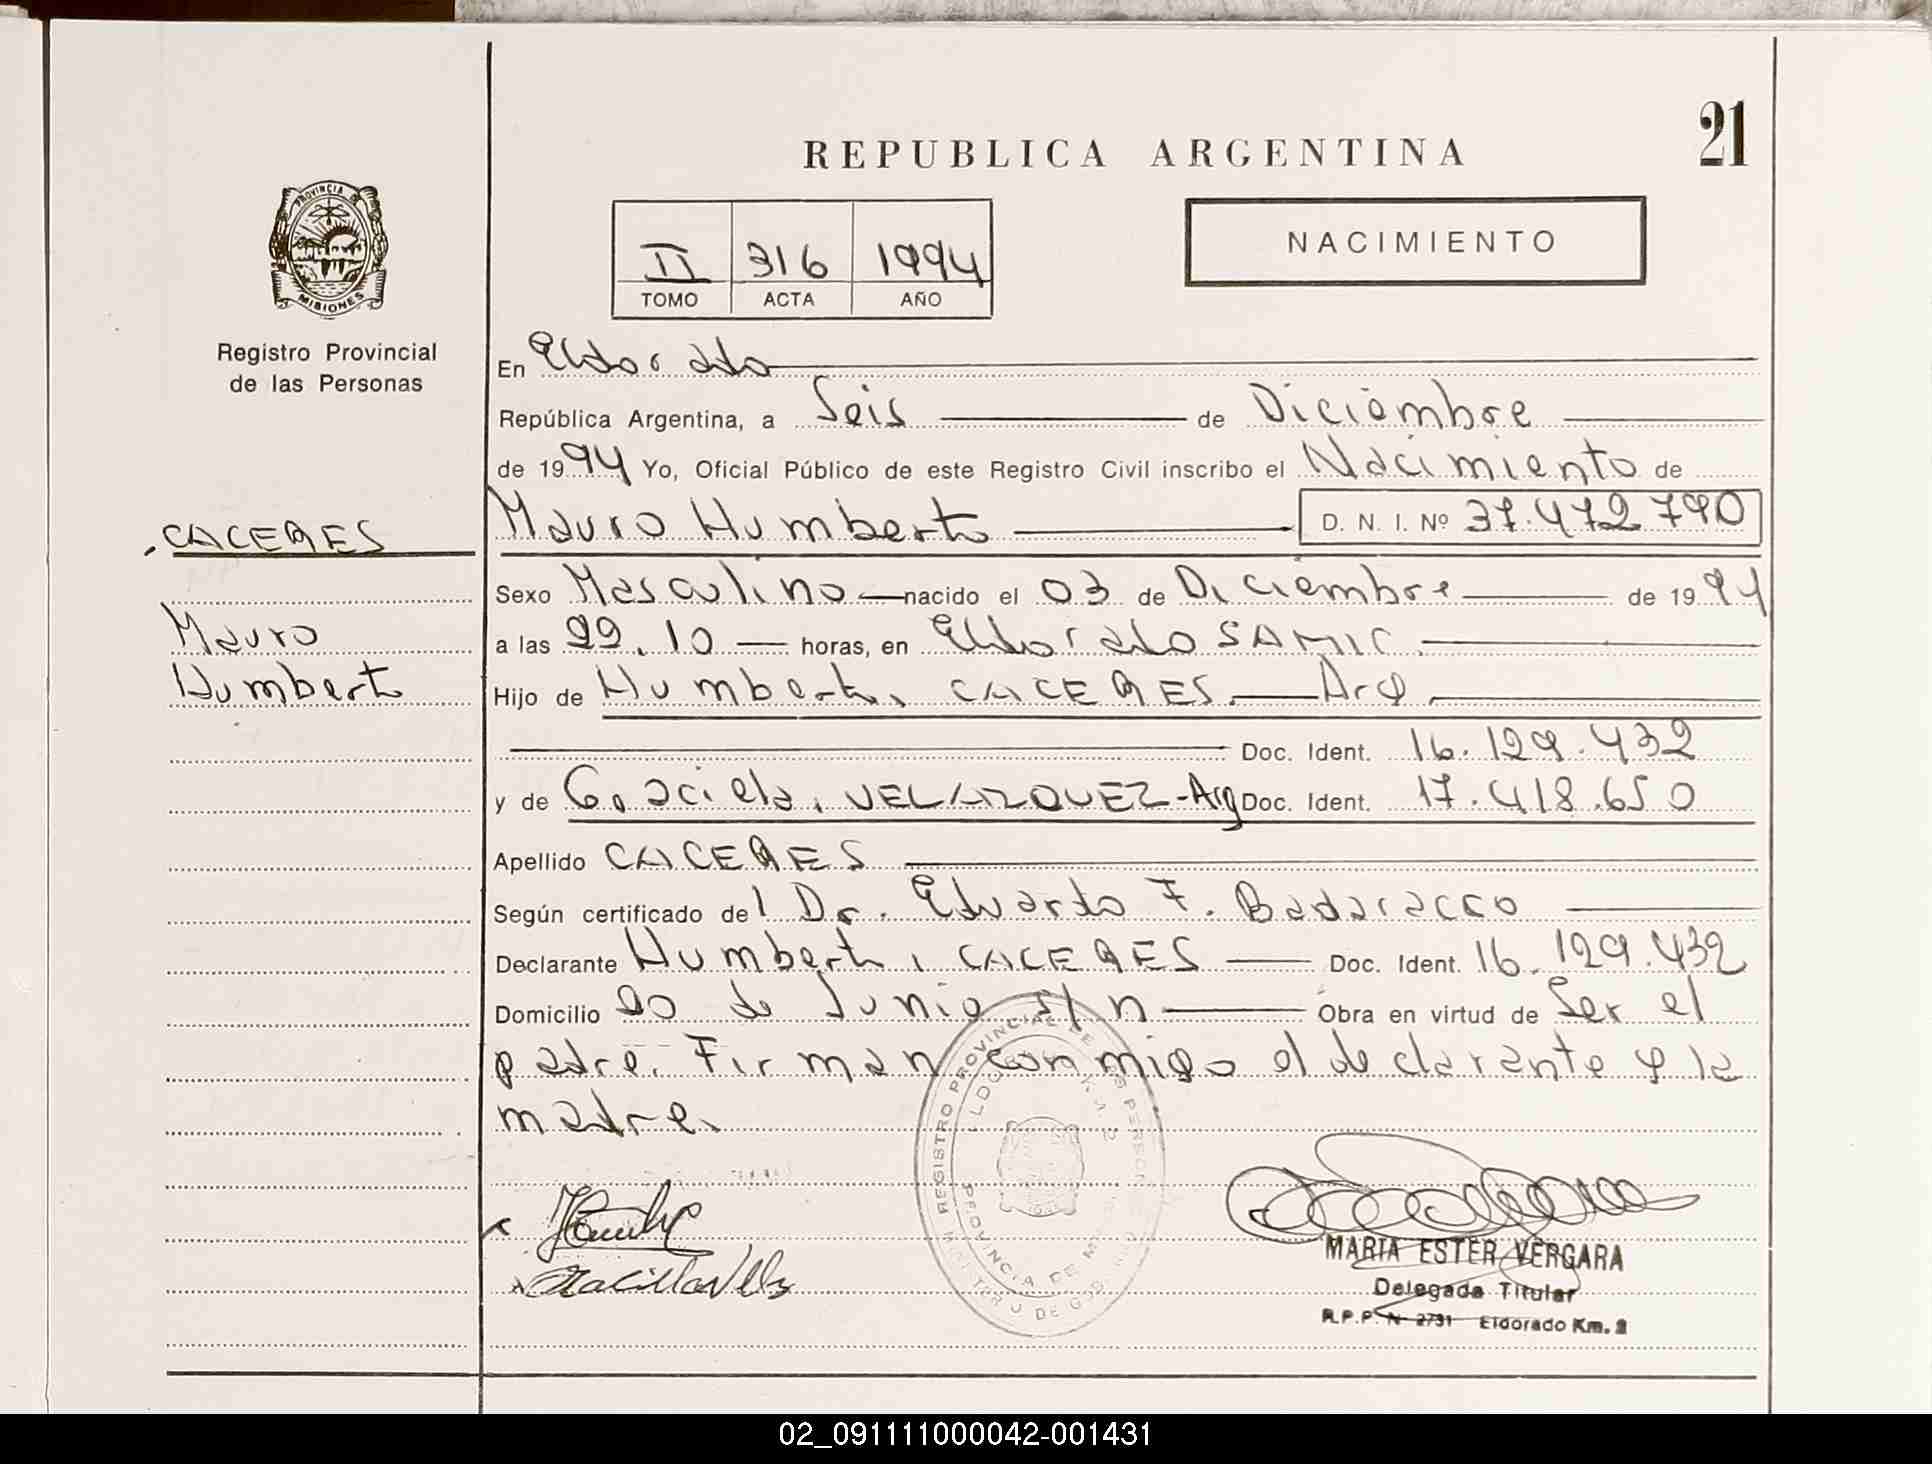 21
REPUBLICA ARGENTINA
PROVINCIA DE
MISIONES
Registro Provincial
de las Personas
II 316 1994
TOMO ACTA AÑO
NACIMIENTO
En Eldorado
República Argentina, a Seis de Diciembre
de 1994 Yo, Oficial Público de este Registro Civil inscribo el Nacimiento de
CACERES
Mauro Humberto D. N. I. Nº 37.472790
Sexo Masculino nacido el 03 de Diciembre de 1994
Mauro
a las 22.10 horas, en Eldorado SAMIC.
Humberto
Hijo de Humberto, CACERES. Arg.
Doc. Ident. 16.129.432
y de Graciela, VELAZQUEZ-Arg Doc. Ident. 17.418.650
Apellido CACERES
Según certificado del Dr. Eduardo F. Badaracco
Declarante Humberto, CACERES Doc. Ident. 16.129.432
Domicilio 20 de Junio s/n Obra en virtud de Ser el
padre. Firman conmigo el declarante y la
madre.
REGISTRO PROVINCIAL DE LAS PERSONAS
PROVINCIA DE
MARIA ESTER VERGARA
Delegada Titular
R.P.P. N 2731 Eldorado Km. 2
02_091111000042-001431